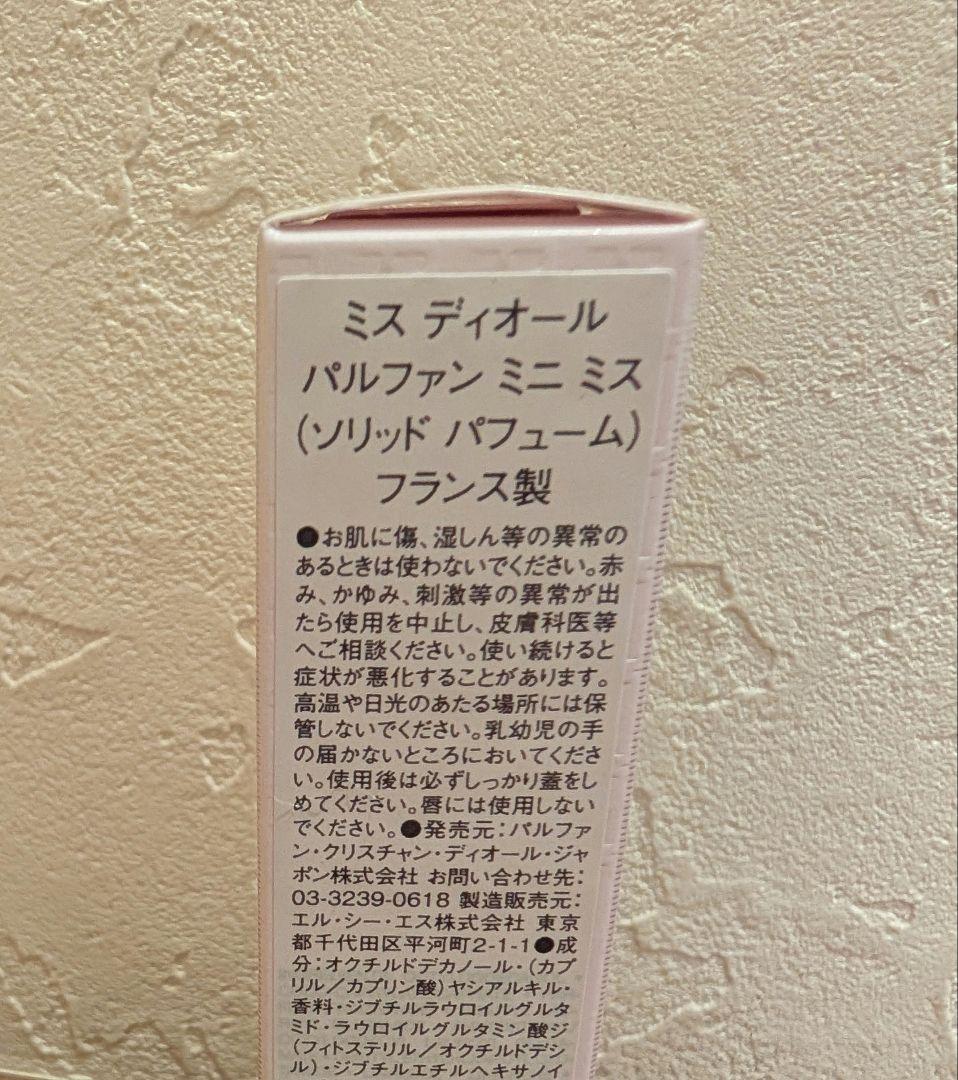 ミス ディオール
パルファン ミニ ミス
(ソリッド パフューム)
フランス製
●お肌に傷、湿しん等の異常の
あるときは使わないでください。赤
み、かゆみ、刺激等の異常が出
たら使用を中止し、皮膚科医等
へご相談ください。使い続けると
症状が悪化することがあります。
高温や日光のあたる場所には保
管しないでください。乳幼児の手
の届かないところにおいてくださ
い。使用後は必ずしっかり蓋をし
めてください。唇には使用しない
でください。●発売元：パルファ
ン・クリスチャン・ディオール・ジャ
ポン株式会社 お問い合わせ先：
03-3239-0618 製造販売元：
エル・シー・エス株式会社 東京
都千代田区平河町2-1-1●成
分：オクチルドデカノール・(カプ
リル／カプリン酸)ヤシアルキル・
香料・ジブチルラウロイルグルタ
ミド・ラウロイルグルタミン酸ジ
(フィトステリル／オクチルドデシ
ル)・ジブチルエチルヘキサノイ